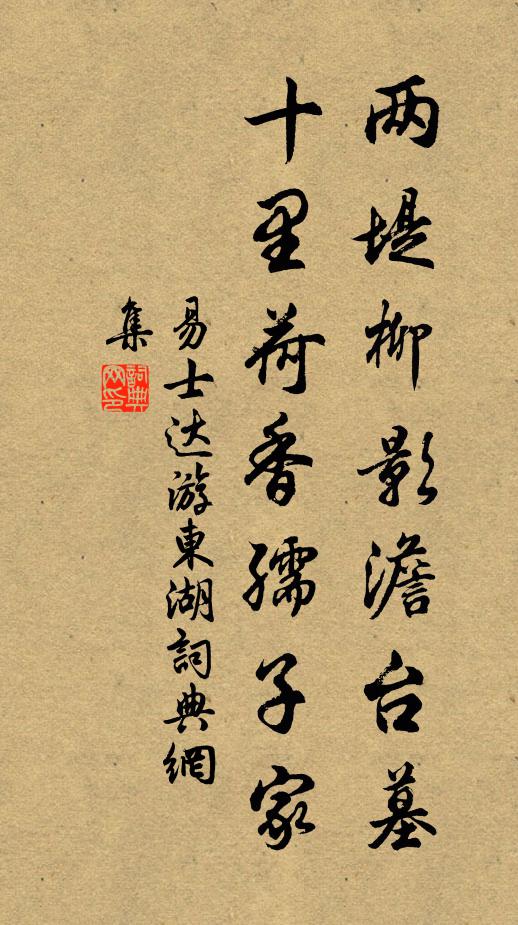 两堤柳影澹台墓
十里荷香孺子家
易士达游東湖詞典網
集
詞典网印